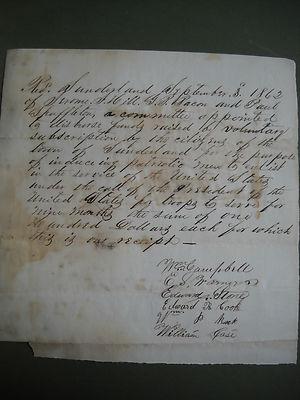 Recd. Sunderland September 8. 1862
of Jerome S. Hill. G. S. Bacon and Paul
Spaulding, a committee appointed
to disburse funds raised by voluntary
subscription by the citizens of the
town of Sunderland for the purpose
of inducing patriotic men to enlist
in the service of the United States
under the call of the President of the
United States for troops to serve for
nine months the sum of one
Hundred Dollars each for which
this is our receipt —
Wm Campbell
Edward Stone
Edward Cook
William Case